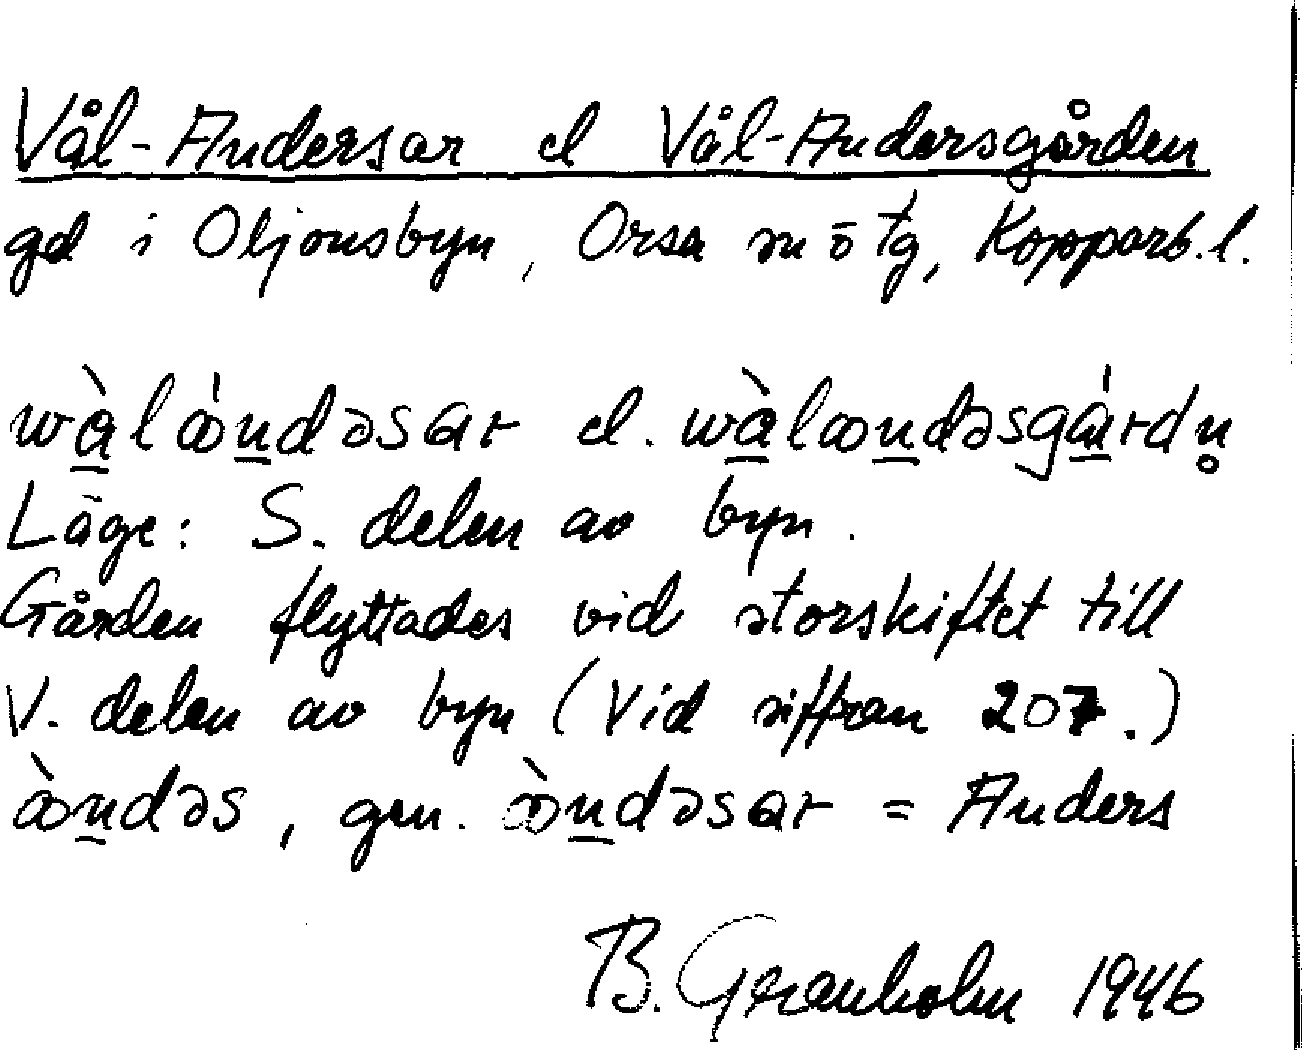 Vål-Andersar el Vål-Andersgården
gd i Oljonsbyn, Orsa sn o tg, Kopparb.l.
wàlɷ́ndəsar el. wàlɷndəsgárdn̥
Läge: S. delen av byn.
Gården flyttades vid storskiftet till
V. delen av byn (Vid siffran 207.)
ɷ̀ndəs, gen. ɷ̀ndəsar = Anders
B. Granholm 1946